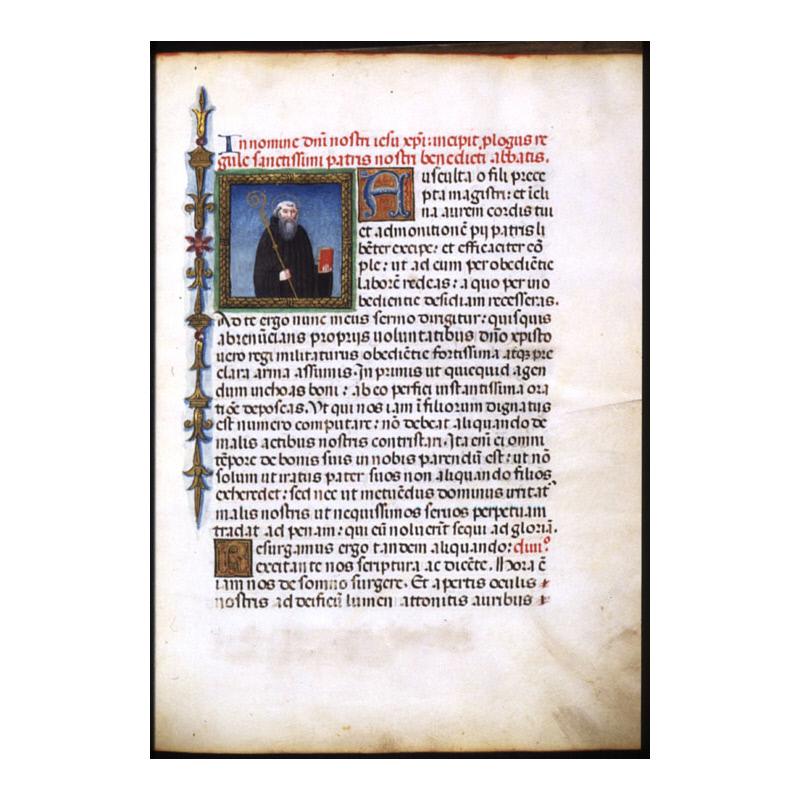 In nomine dñi nostri iesu xp̄i: incipit plogus re
gule sanctissimi patris nostri benedicti abbatis.
Ausculta o fili prece
pta magistri: et ĩcli
na aurem cordis tui
et admonitionē pij patris li
bēter excipe: et efficaciter cō
ple: ut ad eum per obediētie
laborē redeas: a quo per ino
bedientie desidiam recesseras.
Ad te ergo nunc meus sermo dirigitur: quisquis
abrenūcians proprijs uoluntatibus dño xpisto
uero regi militaturus obediētie fortissima atq̃ pre
clara arma assumis. In primis ut quicquid agen
dum inchoas boni: ab eo perfici instantissima ora
tiōe deposcas. Vt qui nos iam ĩ filiorum dignatus
est numero computare: nō debeat aliquando de
malis actibus nostris contristari. Ita enī ei omni
tēpore de bonis suis in nobis parendū est: ut nō
solum ut iratus pater suos non aliquando filios
exheredet: sed nec ut metuēdus dominus irritat᾽
malis nostris ut nequissimos seruos perpetuam
tradat ad penam: qui eū noluerīt sequi ad gloriā.
Resurgamus ergo tandem aliquando:
excitante nos scriptura ac dicēte. Hora ē
iam nos de somno surgere. Et apertis oculis
nostris ad deificū lumen attonitis auribus